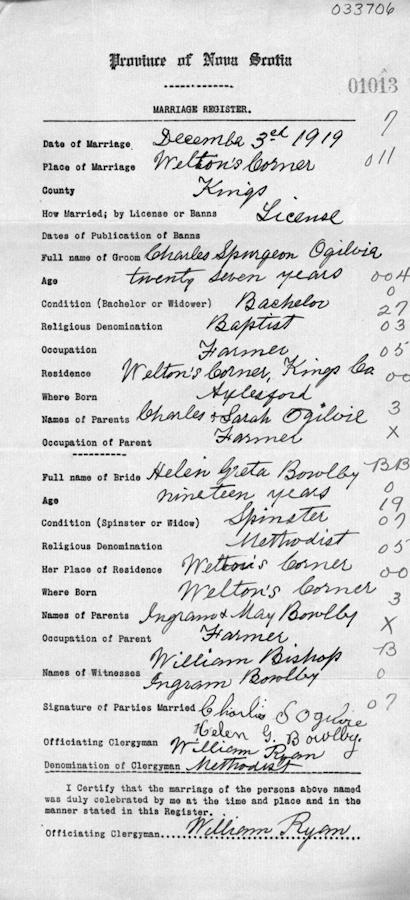 033706
Province of Nova Scotia
01013
MARRIAGE REGISTER.
7
Date of Marriage December 3rd 1919
Place of Marriage Welton's Corner 011
County Kings
How Married; by License or Banns License
Dates of Publication of Banns
Full name of Groom Charles Spurgeon Ogilvie
Age twenty seven years 004
0
Condition (Bachelor or Widower) Bachelor 27
Religious Denomination Baptist 03
Occupation Farmer 05
Residence Welton's Corner, Kings Co 00
Where Born Aylesford
Names of Parents Charles & Sarah Ogilvie 3
Occupation of Parent Farmer X
Full name of Bride Helen Greta Bowlby BB
Age nineteen years 0
19
Condition (Spinster or Widow) Spinster 07
Religious Denomination Methodist 05
Her Place of Residence Welton's Corner 00
Where Born Welton's Corner 3
Names of Parents Ingram & May Bowlby X
Occupation of Parent Farmer
William Bishop B
Names of Witnesses Ingram Bowlby 0
Signature of Parties Married Charlie S Ogilvie 07
Helen G. Bowlby.
Officiating Clergyman William Ryan
Denomination of Clergyman Methodist
I Certify that the marriage of the persons above named
was duly celebrated by me at the time and place and in the
manner stated in this Register.
Officiating Clergyman William Ryan